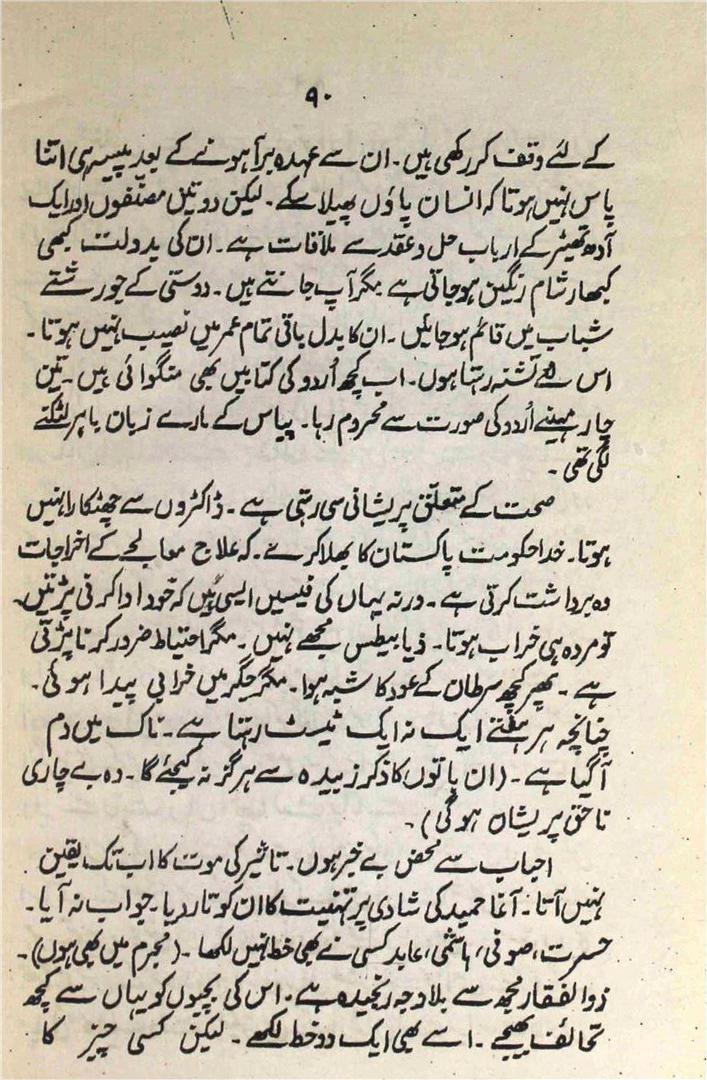 ۹۰
کے لئے وقف کر رکھی ہیں۔ ان سے عہدہ برآ ہونے کے بعد پیسہ ہی اتنا
پاس نہیں ہوتا کہ انسان پاؤں پھیلا سکے۔ لیکن دو تین مصنفوں اور ایک
آدھ تھیٹر کے ارباب حل و عقد سے ملاقات ہے۔ ان کی بدولت کبھی
کبھار شام رنگین ہو جاتی ہے مگر آپ جانتے ہیں۔ دوستی کے جو رشتے
شباب میں قائم ہو جائیں۔ ان کا بدل باقی تمام عمر میں نصیب نہیں ہوتا۔
اس لئے تشنہ رہتا ہوں۔ اب کچھ اُردو کی کتابیں بھی منگوائی ہیں۔ تین
چار مہینے اُردو کی صورت سے محروم رہا۔ پیاس کے مارے زبان باہر لٹکنے
لگی تھی۔
صحت کے متعلق پریشانی سی رہتی ہے۔ ڈاکٹروں سے چھٹکارا نہیں
ہوتا۔ خدا حکومت پاکستان کا بھلا کرے۔ کہ علاج معالجے کے اخراجات
وہ برداشت کرتی ہے۔ ورنہ یہاں کی فیسیں ایسی ہیں کہ خود ادا کرنی پڑتیں۔
تو مردہ ہی خراب ہوتا۔ ذیابیطس مجھے نہیں۔ مگر احتیاط ضرور کرنا پڑتی
ہے۔ پھر کچھ سرطان کے عود کا شبہ ہوا۔ مگر جگر میں خرابی پیدا ہوئی۔
چنانچہ ہر ہفتے ایک نہ ایک ٹیسٹ رہتا ہے۔ ناک میں دم
آ گیا ہے۔ (ان باتوں کا ذکر زبیدہ سے ہرگز نہ کیجئے گا۔ وہ بے چاری
ناحق پریشان ہو گی)۔
احباب سے محض بے خبر ہوں۔ تاثیر کی موت کا اب تک یقین
نہیں آتا۔ آغا حمید کی شادی پر تہنیت کا ان کو تار دیا۔ جواب نہ آیا۔
حسرت، صوفی، ہاشمی، عابد کسی نے بھی خط نہیں لکھا۔ (مجرم میں بھی ہوں)۔
ذوالفقار مجھ سے بلاوجہ رنجیدہ ہے۔ اس کی بچیوں کو یہاں سے کچھ
تحائف بھیجے۔ اسے بھی ایک دو خط لکھے۔ لیکن کسی چیز کا